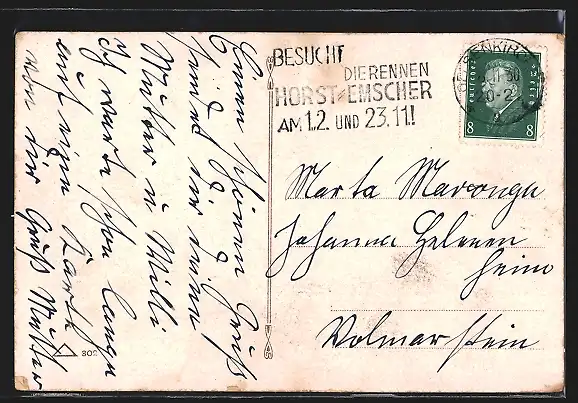 Einen schönen Gruß
sendet dir deine
Mutter u Willi
ich warte schon lange
auf eine Karte
von dir Gruß Mutter
BESUCHT
DIE RENNEN
HORST-EMSCHER
AM 1.2. UND 23.11!
GELSENKIRCHEN
11 30
20-2
Deutsches Reich
8 8
Marta Maronga
Johanna Helenen
heim
Volmarstein
309